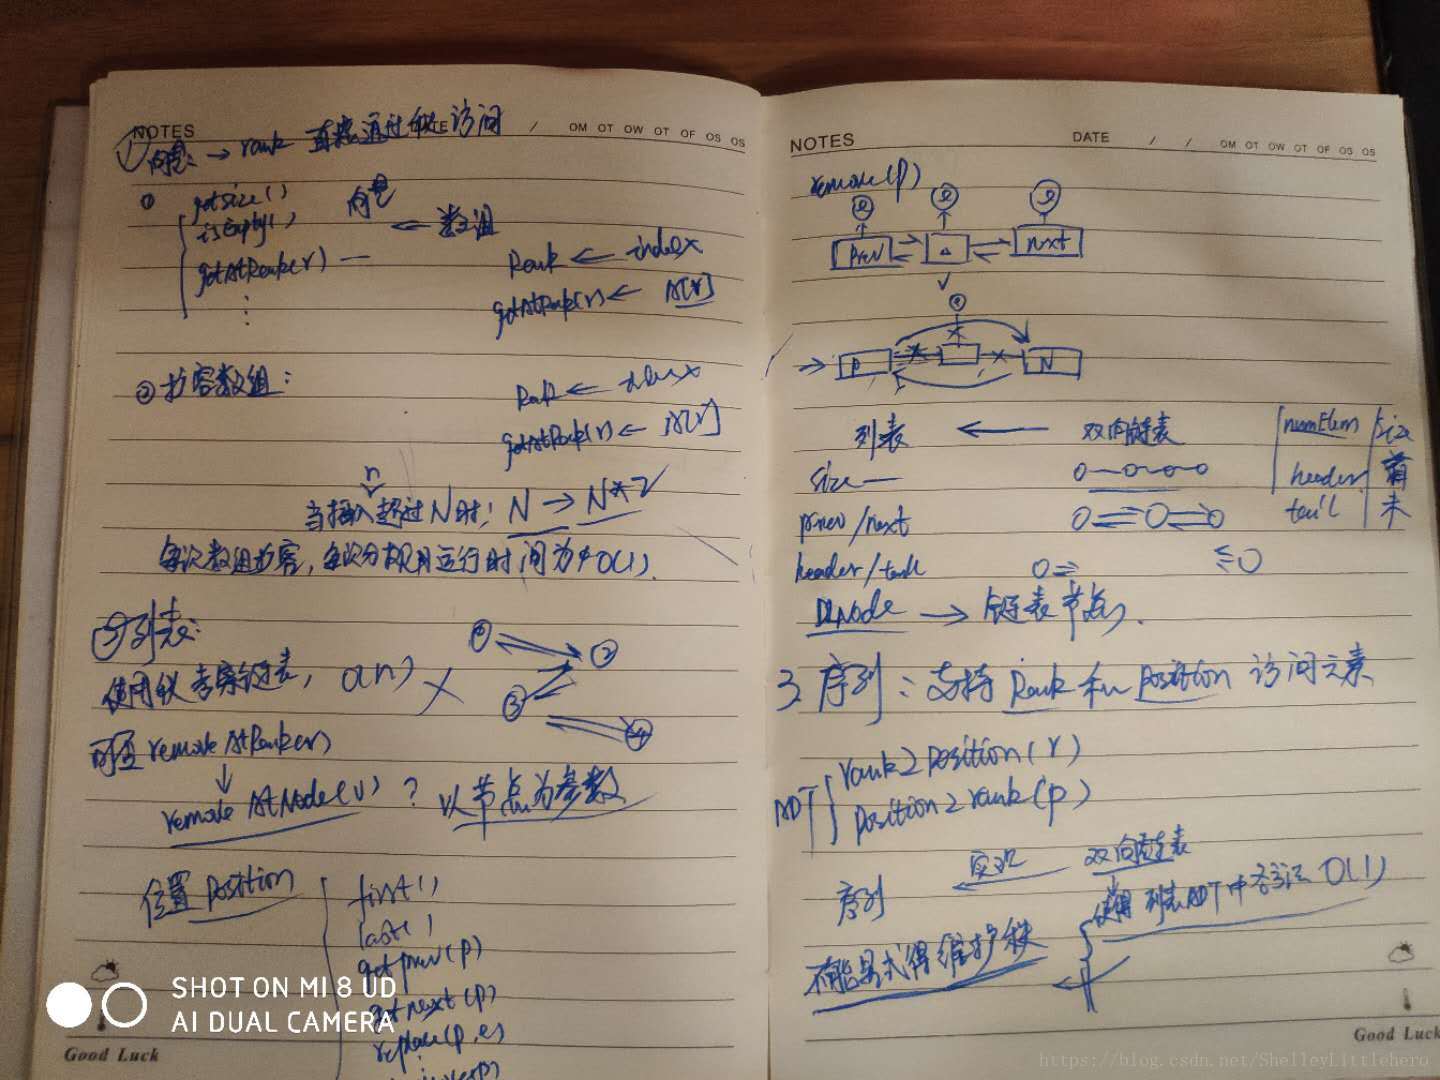 NOTES
OM OT OW OT OF OS OS
① 向量: → rank 直接通过秩访问
① getSize()
isEmpty()
getAtRank(r) —
⋮
向量 ← 数组
Rank ← index
getAtRank(r) ← A[r]
② 扩容数组:
Rank ← index
getAtRank(r) ← A[r]
n
当插入超过N时; N → N*2
每次数组扩容, 每次分摊运行时间为 O(1).
② 列表:
使用 链表, O(n)
① ② ③ ④
可否 removeAtRank(r)
↓
removeAtNode(v) ? 以节点为参数
位置 position
first()
last()
getprev(p)
getnext(p)
replace(p,e)
SHOT ON MI 8 UD
AI DUAL CAMERA
Good Luck
NOTES DATE / /
OM OT OW OT OF OS OS
remove(p)
Prev next
P N
列表 ← 双向链表
numElem size
size —
header 首
prev/next
tail 末
header/tail
DLNode → 链表节点.
3 序列: 支持 Rank 和 position 访问元素
ADT rank2position(r)
position2rank(p)
序列 ← 实现 双向链表
使用 列表ADT中各方法 O(1)
不能显式得维护秩
Good Luck
https://blog.csdn.net/ShelleyLittlehero